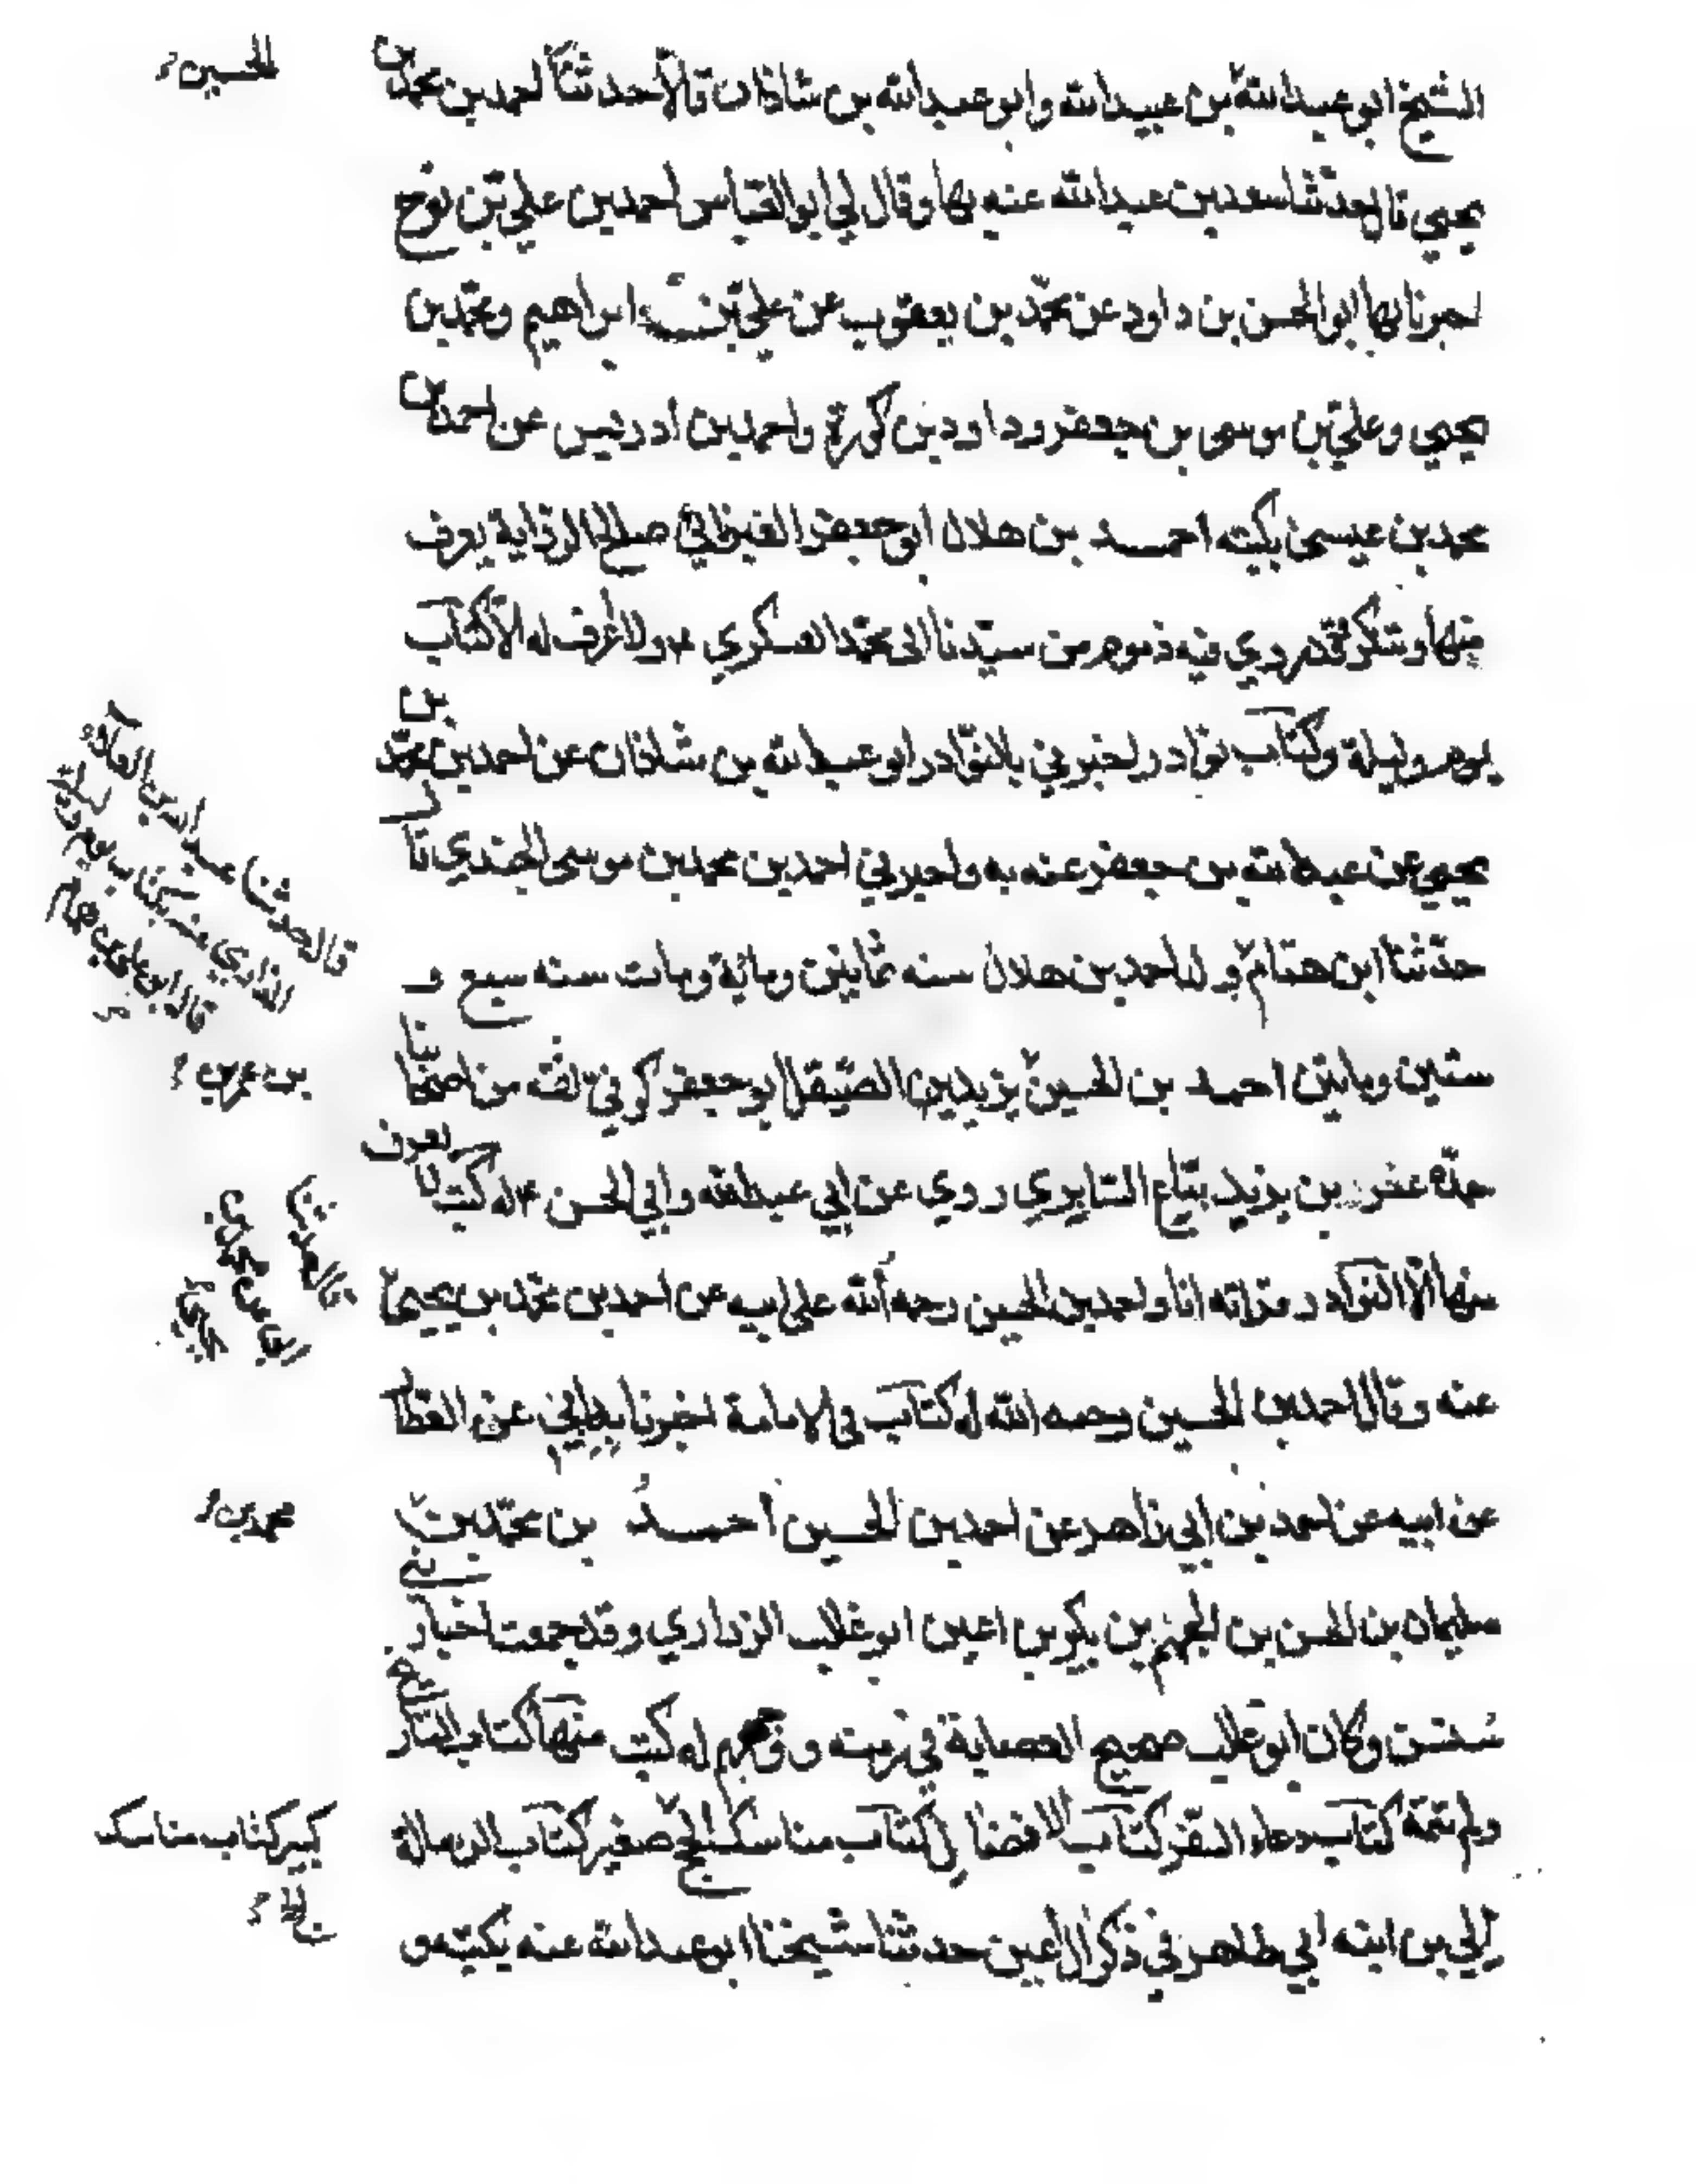 الشيخ ابو عبد الله بن عبيد الله وابو عبد الله بن شاذان قالا حدثنا احمد بن محمد بن
الحسين
يحيى قال حدثنا سعد بن عبد الله عنه بها وقال لي ابو العباس احمد بن علي بن نوح
اخبرنا بها ابو الحسن بن داود عن محمد بن يعقوب عن علي بن ابراهيم ومحمد بن
يحيى وعلي بن موسى بن جعفر وداود بن كورة واحمد بن ادريس عن احمد بن
محمد بن عيسى بكتبه احمد بن هلال ابو جعفر العبرتائي صالح الرواية يعرف
منها وينكر وقد روي فيه ذموم من سيدنا ابى محمد العسكري ولا اعرف له الا كتاب
يوم وليلة وكتاب نوادر اخبرني بالنوادر ابو عبد الله بن شاذان عن احمد بن محمد بن
يحيى عن عبد الله بن جعفر عنه به واخبرني احمد بن محمد بن موسى الجندي قال
حدثنا ابن همام ولد احمد بن هلال سنه ثمانين ومائة ومات سنه سبع و
قال حدثنا
قال ابو علي بن همام
ستين ومايتين احمد بن الحسين يزيد بن الصيقل ابو جعفر كوفي ثقه من اصحابنا
بن عمر بن
جده عمر بن يزيد بياع السابري روي عن ابي عبد الله وابي الحسن له كتب لا يعرف
منها الا النوادر قراته انا واحمد بن الحسين رحمه الله على ابيه عن احمد بن محمد بن يحيى
قال حدثنا
عنه وقال احمد بن الحسين رحمه الله له كتاب في الامامة اخبرنا به ابي عن العطار
عن ابيه عن احمد بن ابي زاهر عن احمد بن الحسين احمد بن محمد بن
محمد بن
سليمان بن الحسن بن الجهم بن بكير بن اعين ابو غالب الزراري وقد جمعت اخبار بني
سنسن وكان ابو غالب العصابة في زمنه ووجههم له كتب منها كتاب التاريخ
ولم يتمه كتاب دعاء السفر كتاب الافضال كتاب مناسك الحج صغير كتاب الرسالة
كبير كتاب مناسك
الحج
الى بن ابنه ابي طاهر في ذكر ال اعين حدثنا شيخنا ابو عبد الله عنه بكتبه و